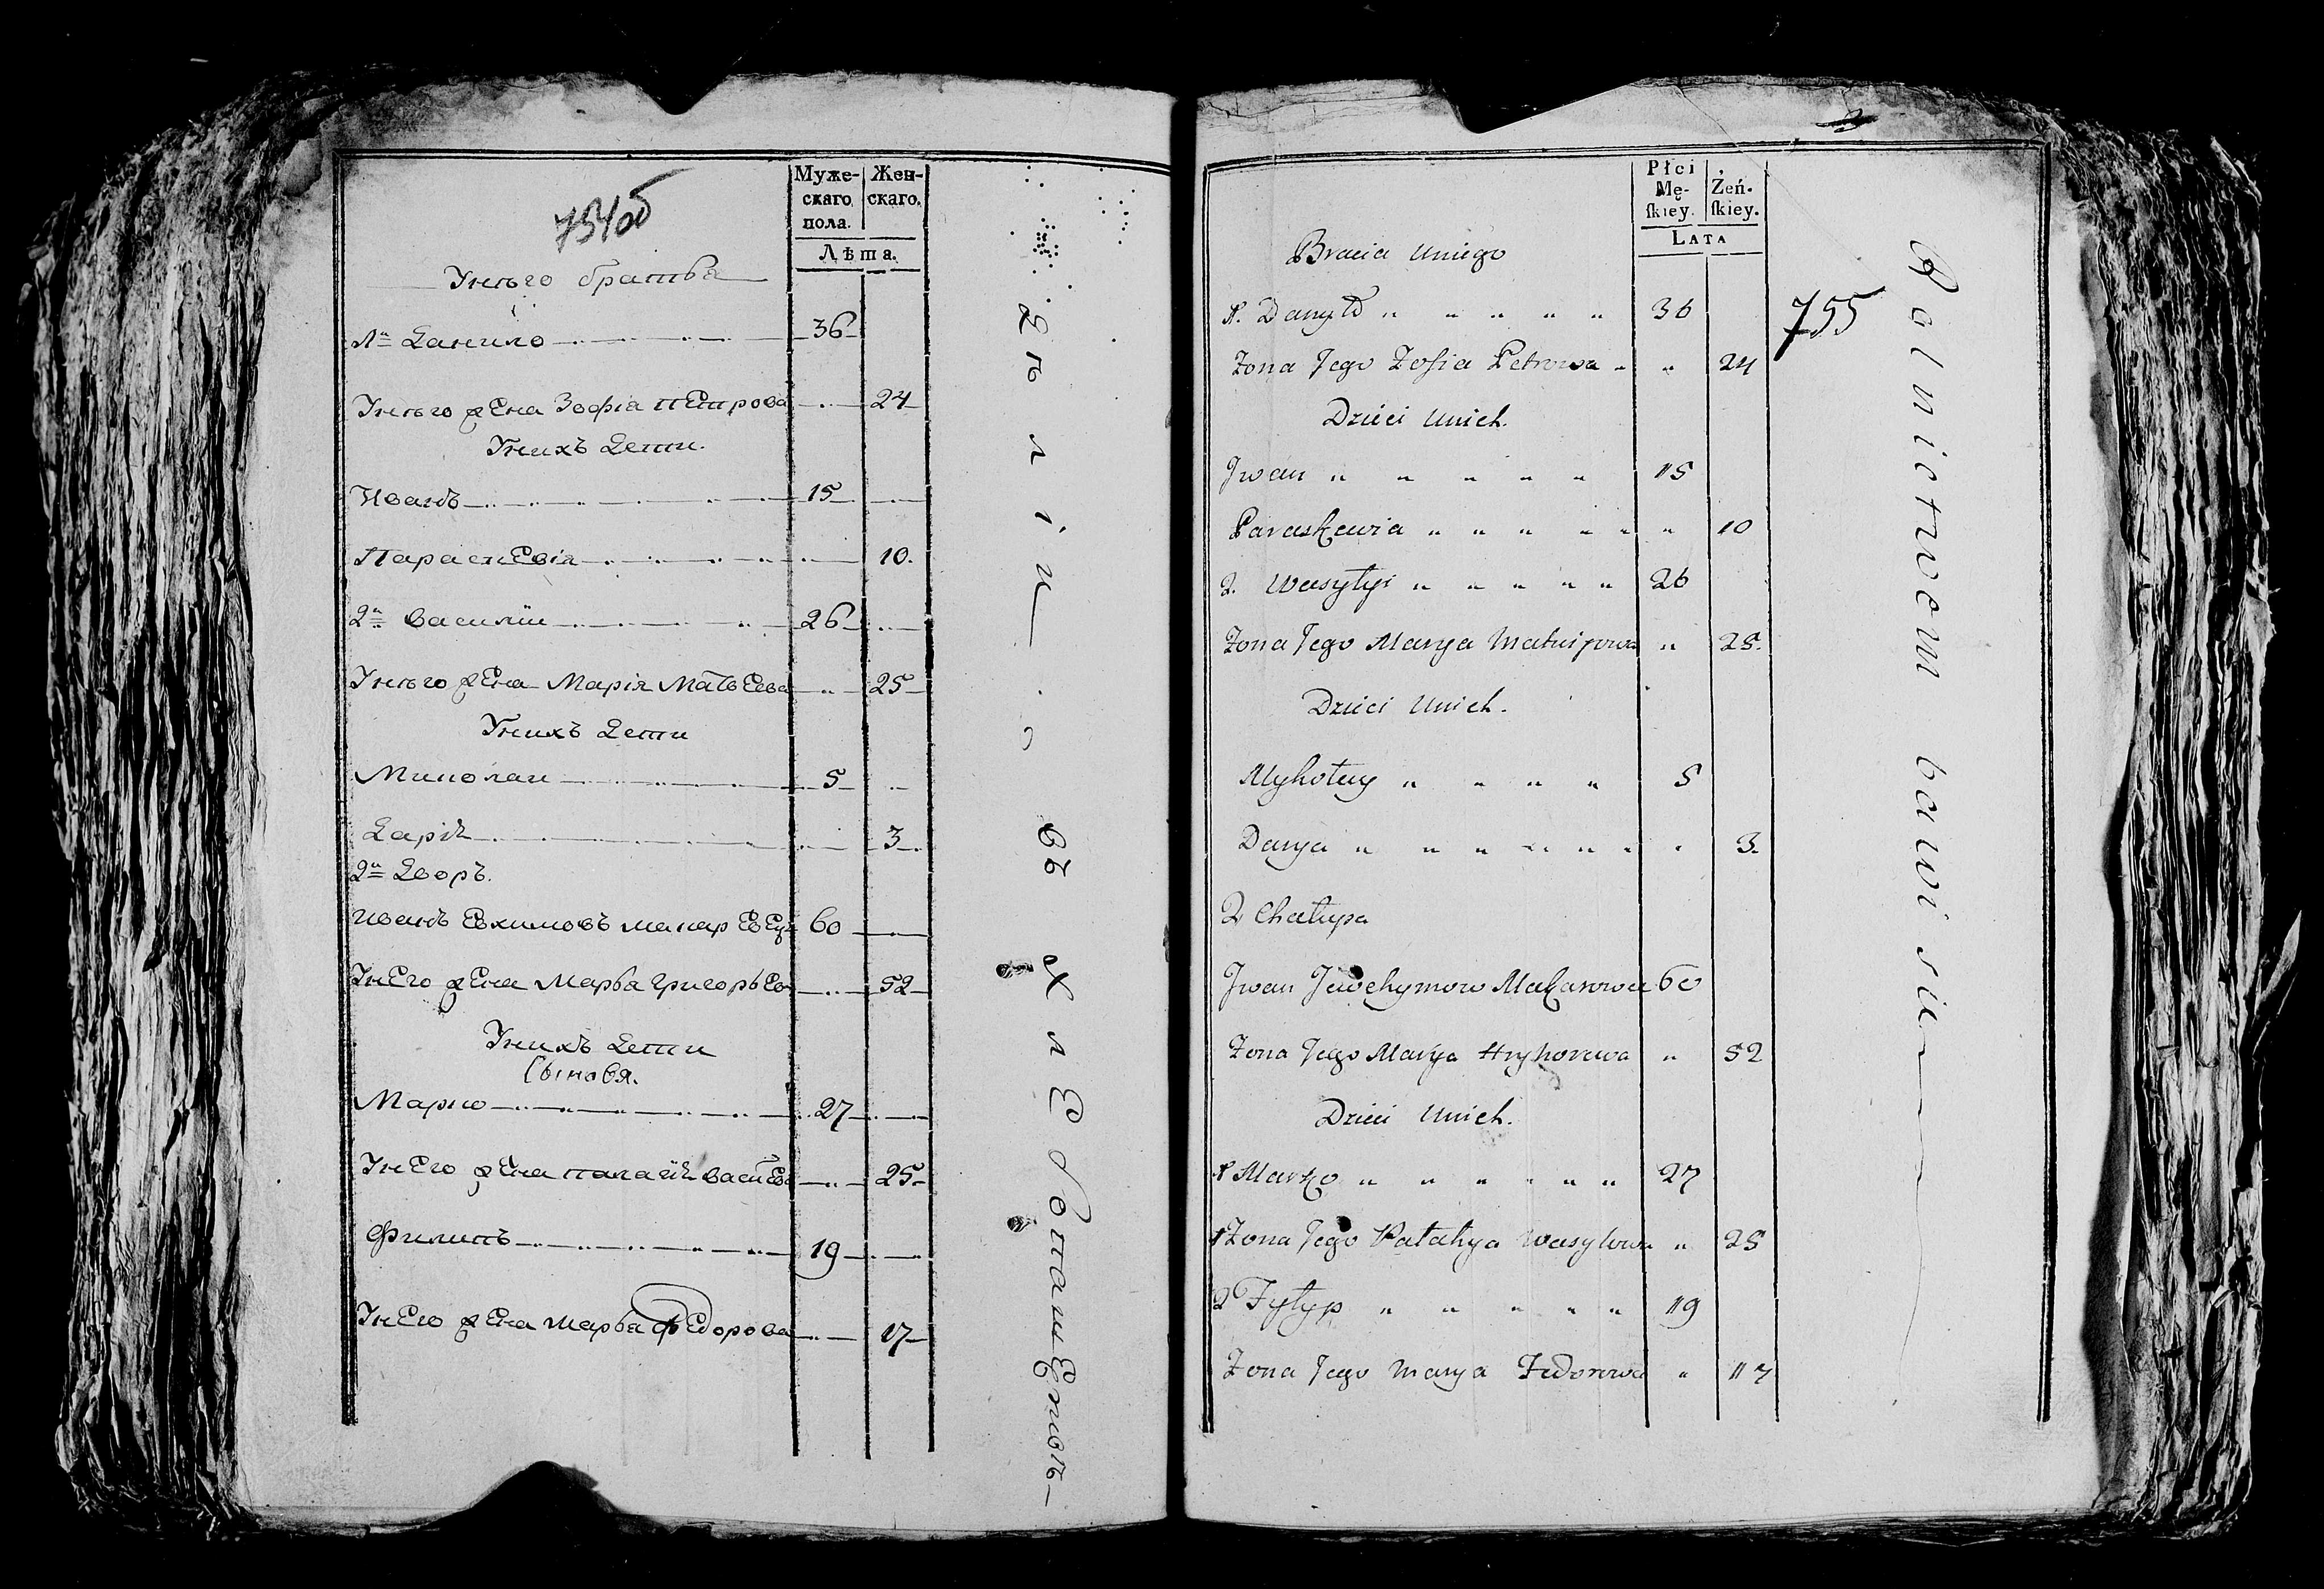 754об
Муже-
скаго
пола.
Жен-
скаго.
Лѣта.
Унѣго братья
1й Данило 36
Унѣго жена Зофія петрова 24
Унихъ дети.
Иванъ 15
Параскевія 10.
2й василій 26
Унѣго жена Марія Матвеева 25
Унихъ дети
Миколай 5
Дарія 3
2й дворъ.
Иванъ Евхимовъ 60
Унего жена Марья григорьев 52
Унихъ дети
Сыновя.
Марко 27
Унего жена палагія 25
Филипъ 19
Унего жена марья федорова 17
въ хлебопашестве
Płci
Mę-
ſkiey.
Żeń-
ſkiey.
LATA
755
Bracia Uniego
1. Danyło 36
Zona Jego Zofia Petrowa 24
Dzieci Unich.
Jwan 15
Paraskewia 10
2. Wasylyi 26
Zona Jego Marya Matwijowa 25.
Dzieci Unich.
Mykołay 5
Darya 3.
2 Chałupa
Jwan Jewchymow 60
Zona Jego Marya Hryhorowa 52
Dzieci Unich.
1 Marko 27
Zona Jego Pałahya Wasylowa 25
2 Fyłyp 19
Zona Jego Marya Fedorowa 17
Rolnictwem bawi sie